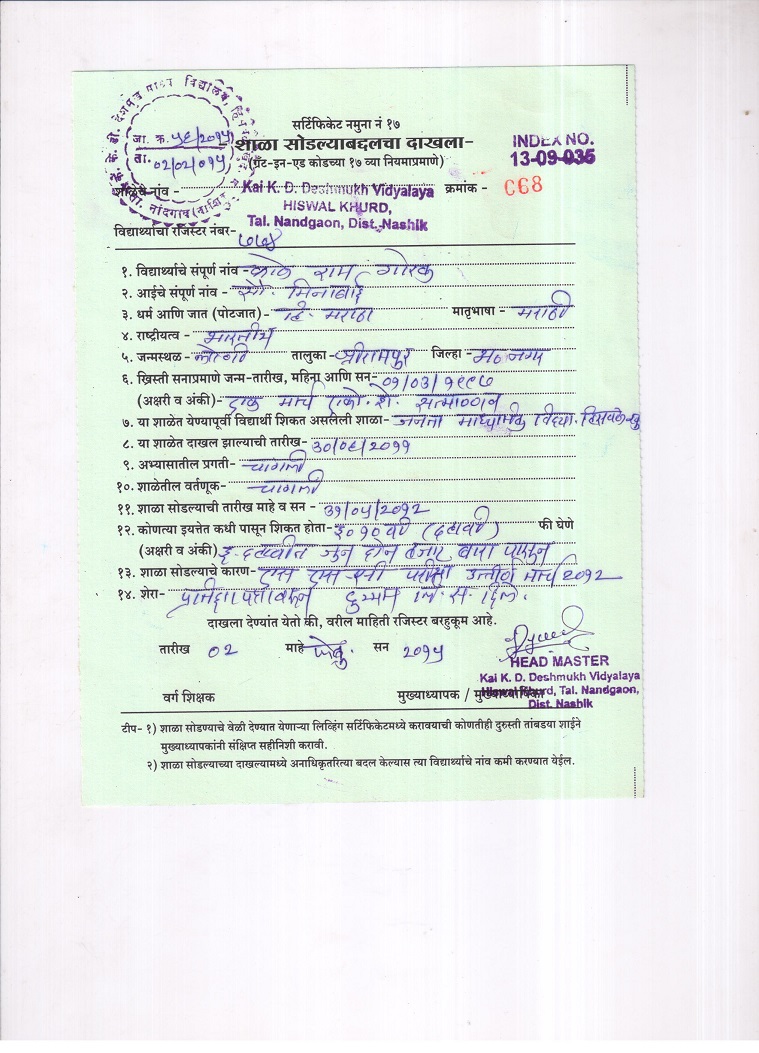 सर्टिफिकेट नमुना नं १७
जा. क्र. ५६/२०१५
ता. ०२/०२/०१५
शाळा सोडल्याबद्दलचा दाखला-
(ग्रँट-इन-एड कोडच्या १७ व्या नियमाप्रमाणे)
INDEX NO.
13-09-035
शाळेचे नांव - Kai K. D. Deshmukh Vidyalaya क्रमांक - 068
HISWAL KHURD,
Tal. Nandgaon, Dist. Nashik
विद्यार्थ्याचा रजिस्टर नंबर-
१. विद्यार्थ्याचे संपूर्ण नांव - काळे राम गोरख
२. आईचे संपूर्ण नांव - सौ. मिनाबाई
३. धर्म आणि जात (पोटजात) - हिं. मराठा मातृभाषा - मराठी
४. राष्ट्रीयत्व - भारतीय
५. जन्मस्थळ - तालुका - श्रीरामपुर जिल्हा -
६. ख्रिस्ती सनाप्रमाणे जन्म-तारीख, महिना आणि सन- ०१/०३/१९९७
(अक्षरी व अंकी) - एक मार्च एको. शे. सत्याण्णव
७. या शाळेत येण्यापूर्वी विद्यार्थी शिकत असलेली शाळा- जनता माध्यमिक विद्या. हिसवळ खु
८. या शाळेत दाखल झाल्याची तारीख- ३०/०६/२०११
९. अभ्यासातील प्रगती- चांगली
१०. शाळेतील वर्तणूक- चांगली
११. शाळा सोडल्याची तारीख माहे व सन - ३१/०५/२०१२
१२. कोणत्या इयत्तेत कधी पासून शिकत होता- इ १० वी (दहावी) फी घेणे
(अक्षरी व अंकी) इ. दहावीत जुन दोन हजार पासुन
१३. शाळा सोडल्याचे कारण- एस एस सी परीक्षा उत्तीर्ण मार्च २०१२
१४. शेरा- प्रतिज्ञा पत्रावरून दुय्यम
दाखला देण्यांत येतो की, वरील माहिती रजिस्टर बरहुकूम आहे.
तारीख ०२ माहे फेब्रु. सन २०१५
HEAD MASTER
Kai K. D. Deshmukh Vidyalaya
Hiswal Khurd, Tal. Nandgaon,
Dist. Nashik
वर्ग शिक्षक मुख्याध्यापक / मुख्याध्यापिका
टीप- १) शाळा सोडण्याचे वेळी देण्यात येणाऱ्या लिव्हिंग सर्टिफिकेटमध्ये करावयाची कोणतीही दुरुस्ती तांबडया शाईने
मुख्याध्यापकांनी संक्षिप्त सहीनिशी करावी.
२) शाळा सोडल्याच्या दाखल्यामध्ये अनाधिकृतरित्या बदल केल्यास त्या विद्यार्थ्याचे नांव कमी करण्यात येईल.